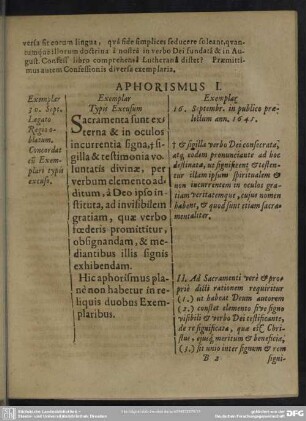 versa sit eorum lingua, quâ fide simplices seducere soleant, quan-
tumque illorum doctrina à nostrâ in verbo Dei fundatâ & in Au-
gust. Confess. libro comprehensâ Lutheranâ distet? Præmitti-
mus autem Confessionis diversa exemplaria.
APHORISMUS I.
Exemplar
10. Sept.
Legato
Regio e-
xhibitum.
Concordat
cũ Exem-
plari typis
excuso.
Exemplar
Typis Excusum
Sacramenta sunt ex-
terna & in oculos
incurrentia signa, si-
gilla & testimonia vo-
luntatis divinæ, per
verbum elemento ad-
ditum, à Deo ipso in-
stituta, ad invisibilem
gratiam, quæ verbo
fœderis promittitur,
obsignandam, & me-
diantibus illis signis
exhibendam.
Hic aphorismus pla-
nè non habetur in re-
liquis duobus Exem-
plaribus.
Exemplar
16. Septembr. in publico præ-
lectum ann. 1645.
& sigilla verbo Dei consecrata,
atq; eodem pronunciante ad hoc
destinata, ut significent & testen-
tur illam ipsam spiritualem &
non incurrentem in oculos gra-
tiam veritatemque, cujus nomen
habent, & quod sunt etiam sacra-
mentaliter.
II. Ad Sacramenti verè & pro-
priè dicti rationem requiritur
(1.) ut habeat Deum autorem
(2.) constet elemento sive signo
visibili & verbo Dei testificante,
de re significata, quæ est Chri-
stus, ejusq; meritum & beneficia,
(3.) sit unio inter signum & rem
B 2
signi-